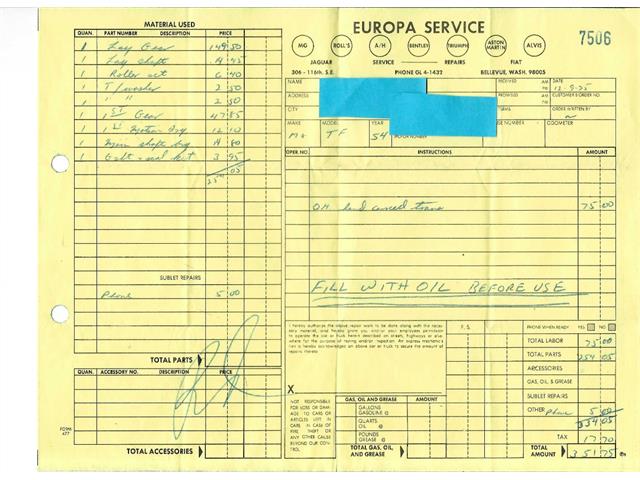 MATERIAL USED
QUAN. PART NUMBER DESCRIPTION PRICE
1 Lay Gear 149 50
1 Lay shaft 14 45
1 Roller set 6 40
1 T/washer 2 50
1 " " 2 50
1 1ST Gear 47 85
1 1st Motion brg 12 10
1 Main shaft brg 14 80
1 Gskt - seal kit 3 95
SUBLET REPAIRS
Phone 5 00
TOTAL PARTS
QUAN. ACCESSORY NO. DESCRIPTION PRICE
FORM 477
TOTAL ACCESSORIES
EUROPA SERVICE
7506
MG ROLL'S A/H BENTLEY TRIUMPH ASTON MARTIN ALVIS
JAGUAR SERVICE REPAIRS FIAT
306 - 116th. S.E. PHONE GL 4-1432 BELLEVUE, WASH. 98005
NAME RECEIVED AM PM DATE
ADDRESS PROMISED AM PM CUSTOMER'S ORDER NO.
CITY TERMS ORDER WRITTEN BY
MAKE MODEL YEAR SE NUMBER ODOMETER
MG TF 54
OPER. NO. INSTRUCTIONS AMOUNT
OH hand carried trans 75.00
FILL WITH OIL BEFORE USE
I hereby authorize the above repair work to be done along with the neces-
sary material, and hereby grant you and/or your employees permission
to operate the car or truck herein described on streets, highways or else-
where for the purpose of testing and/or inspection. An express mechanic's
lien is hereby acknowledged on above car or truck to secure the amount of
repairs thereto.
F.S. PHONE WHEN READY YES NO
TOTAL LABOR 75 00
TOTAL PARTS 254 05
ACCESSORIES
GAS, OIL & GREASE
SUBLET REPAIRS
OTHER Phone 5 00
334 05
TAX 17 70
TOTAL AMOUNT 351 75
X
NOT RESPONSIBLE
FOR LOSS OR DAM-
AGE TO CARS OR
ARTICLES LEFT IN
CARS IN CASE OF
FIRE THEFT OR
ANY OTHER CAUSE
BEYOND OUR CON-
TROL
GAS, OIL AND GREASE AMOUNT
GALLONS GASOLINE @
QUARTS OIL @
POUNDS GREASE @
TOTAL GAS, OIL, AND GREASE